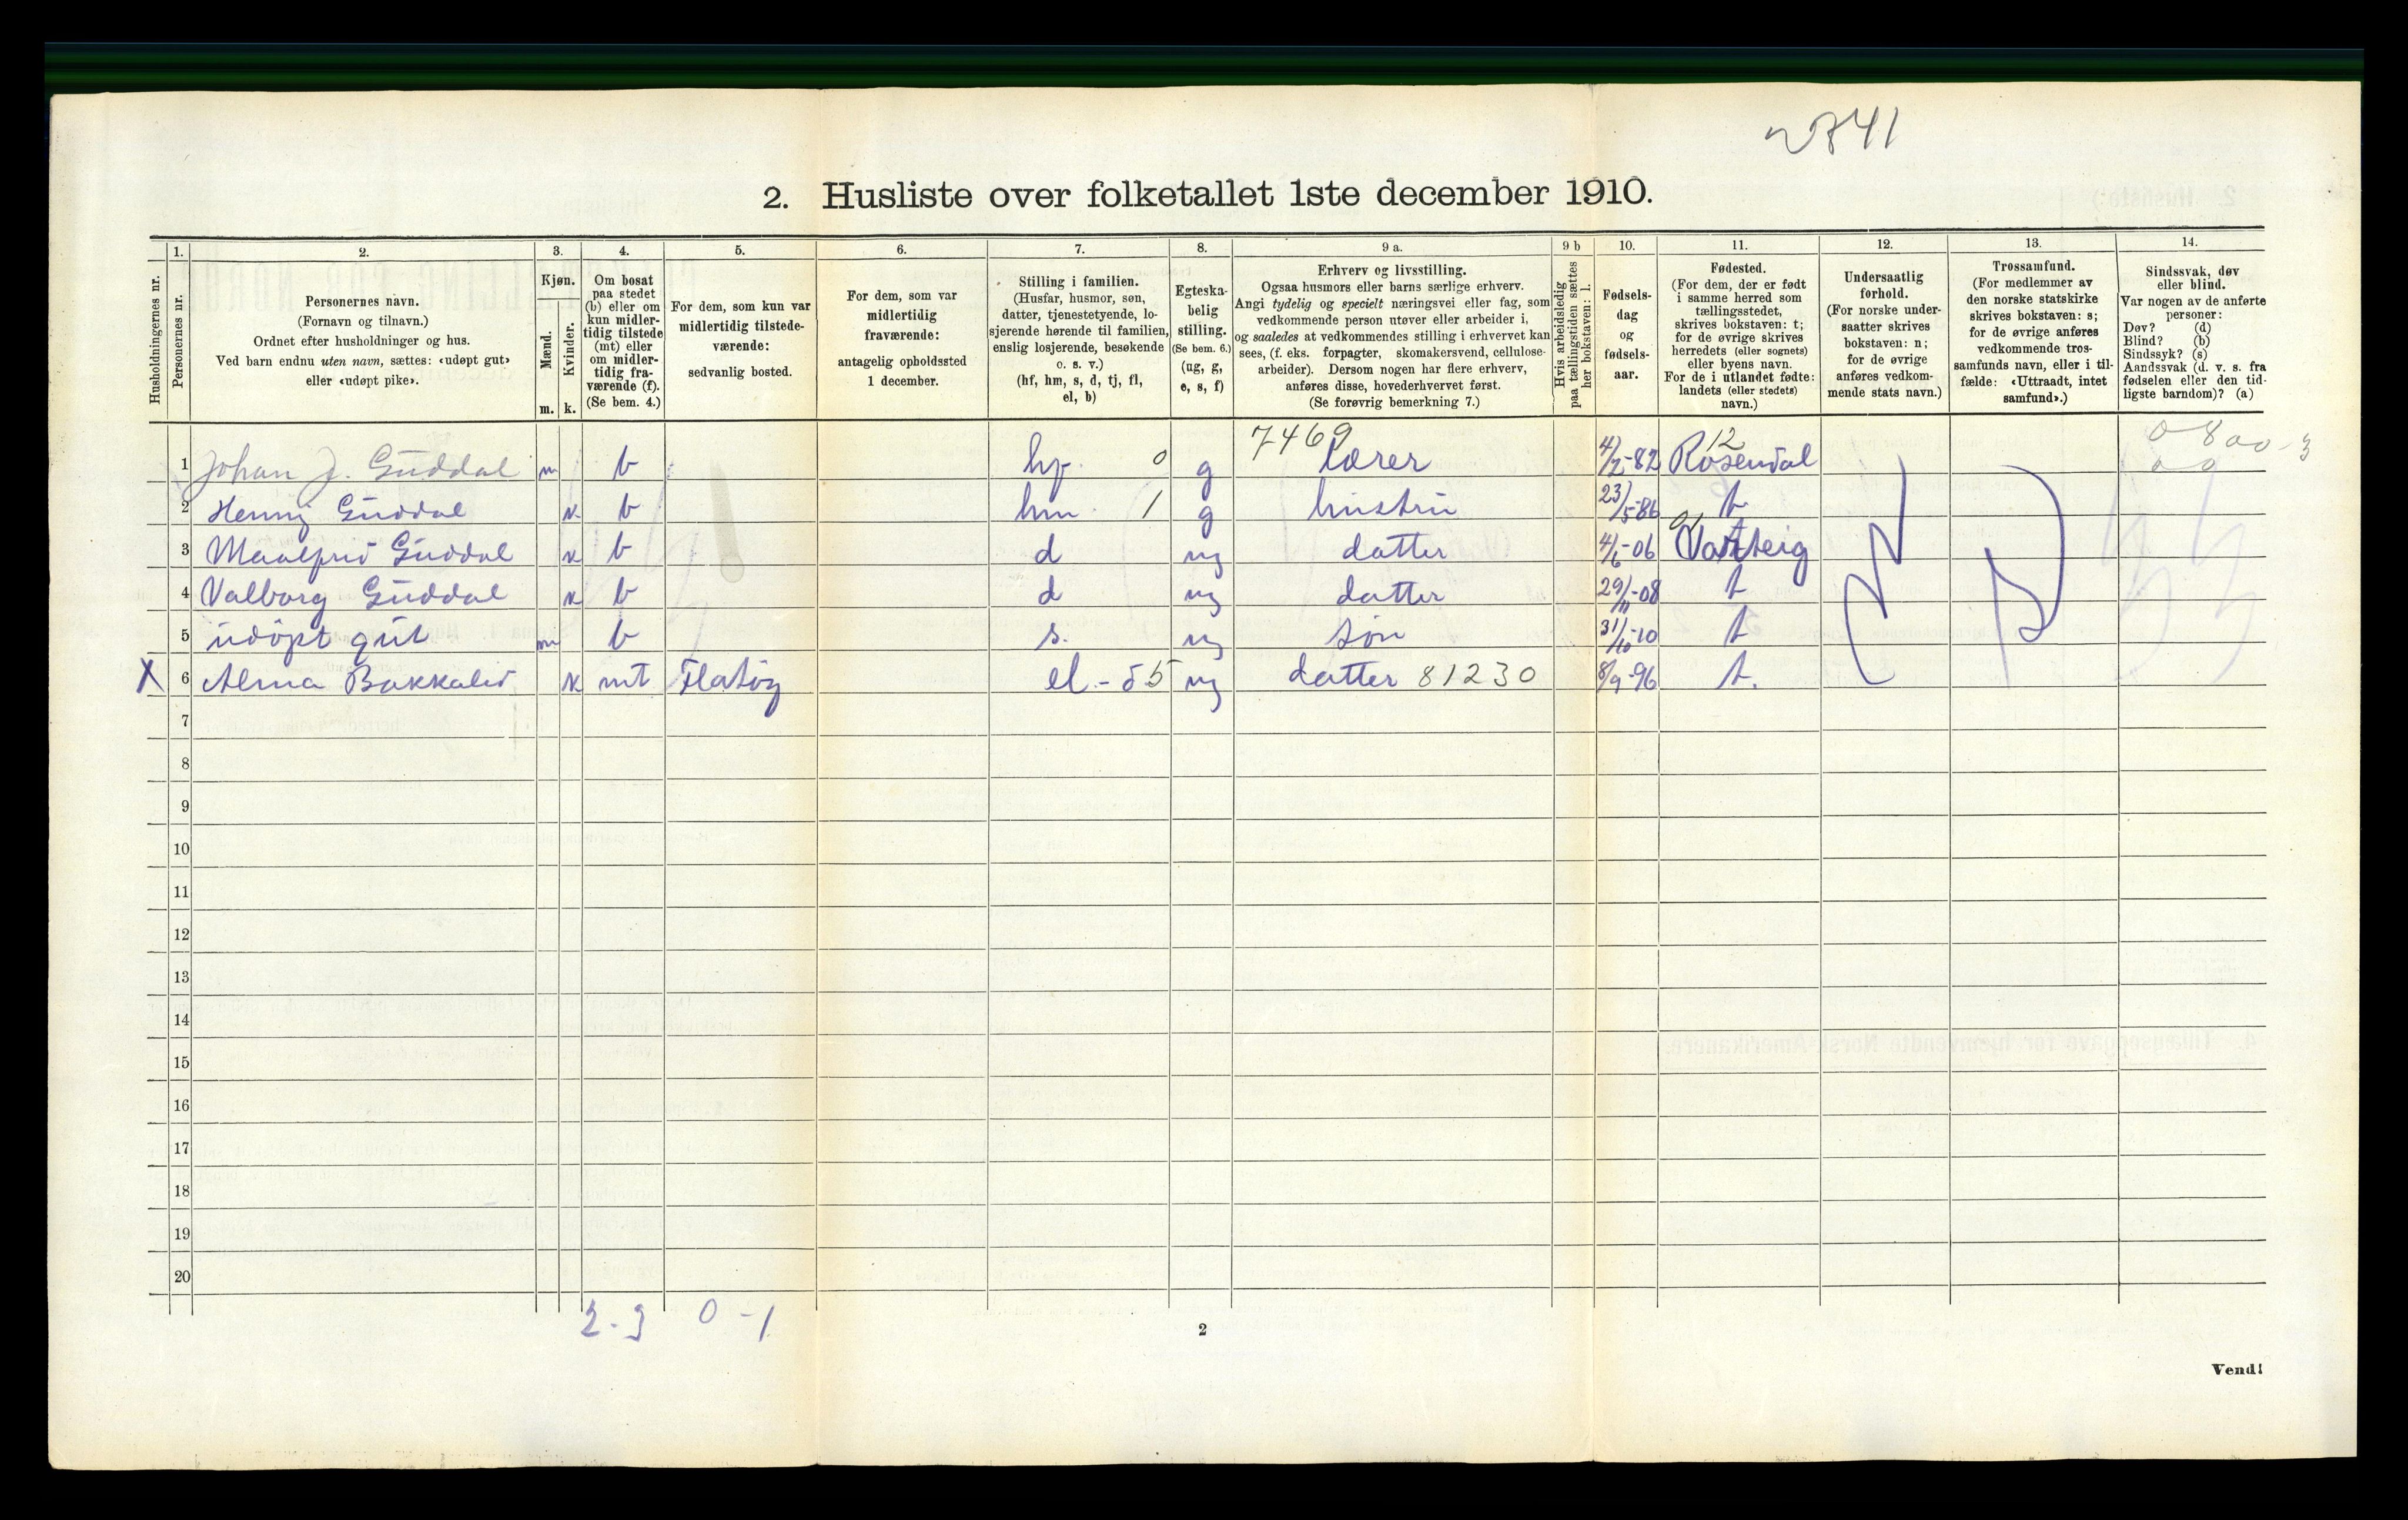 2741
2. Husliste over folketallet 1ste december 1910.
Husholdningernes nr.
1.
Personernes nr.
2.
Personernes navn.
(Fornavn og tilnavn.)
Ordnet efter husholdninger og hus.
Ved barn endnu uten navn, sættes: «udøpt gut»
eller «udøpt pike».
3.
Kjøn.
Mænd.
Kvinder.
m. k.
4.
Om bosat
paa stedet
(b) eller om
kun midler-
tidig tilstede
(mt) eller
om midler-
tidig fra-
værende (f).
(Se bem. 4.)
5.
For dem, som kun var
midlertidig tilstede-
værende:
sedvanlig bosted.
6.
For dem, som var
midlertidig
fraværende:
antagelig opholdssted
1 december.
7.
Stilling i familien.
(Husfar, husmor, søn,
datter, tjenestetyende, lo-
sjerende hørende til familien,
enslig losjerende, besøkende
o. s. v.)
(hf, hm, s, d, tj, fl,
el, b)
8.
Egteska-
belig
stilling.
(Se bem. 6.)
(ug, g,
e, s, f)
9 a.
Erhverv og livsstilling.
Ogsaa husmors eller barns særlige erhverv.
Angi tydelig og specielt næringsvei eller fag, som
vedkommende person utøver eller arbeider i,
og saaledes at vedkommendes stilling i erhvervet kan
sees, (f. eks. forpagter, skomakersvend, cellulose-
arbeider). Dersom nogen har flere erhverv,
anføres disse, hovederhvervet først.
(Se forøvrig bemerkning 7.)
9 b
Hvis arbeidsledig
paa tællingstiden sættes
her bokstaven: l.
10.
Fødsels-
dag
og
fødsels-
aar.
11.
Fødested.
(For dem, der er født
i samme herred som
tællingsstedet,
skrives bokstaven: t;
for de øvrige skrives
herredets (eller sognets)
eller byens navn.
For de i utlandet fødte:
landets (eller stedets)
navn.)
12.
Undersaatlig
forhold.
(For norske under-
saatter skrives
bokstaven: n;
for de øvrige
anføres vedkom-
mende stats navn.)
13.
Trossamfund.
(For medlemmer av
den norske statskirke
skrives bokstaven: s;
for de øvrige anføres
vedkommende tros-
samfunds navn, eller i til-
fælde: «Uttraadt, intet
samfund».)
14.
Sindssvak, døv
eller blind.
Var nogen av de anførte
personer:
Døv? (d)
Blind? (b)
Sindssyk? (s)
Aandssvak (d. v. s. fra
fødselen eller den tid-
ligste barndom)? (a)
7469 12 0800-3
1 Johan J. Guddal m b hf. 0 g Lærer 4/2-82 Rosendal 00
2 Henny Guddal k b hm 1 g hustru 23/5-86 t
3 Maalfrid Guddal k b d ug datter 4/6-06 Varteig
4 Valborg Guddal k b d ug datter 29/11-08 t
5 udøpt gut m b s. ug søn 31/10-10 t
X 6 Alma Bakkalid k mt Flatøy el - 55 ug datter 81230 8/9-96 t.
7
8
9
10
11
12
13
14
15
16
17
18
19
20
2-3 0-1
2
Vend!